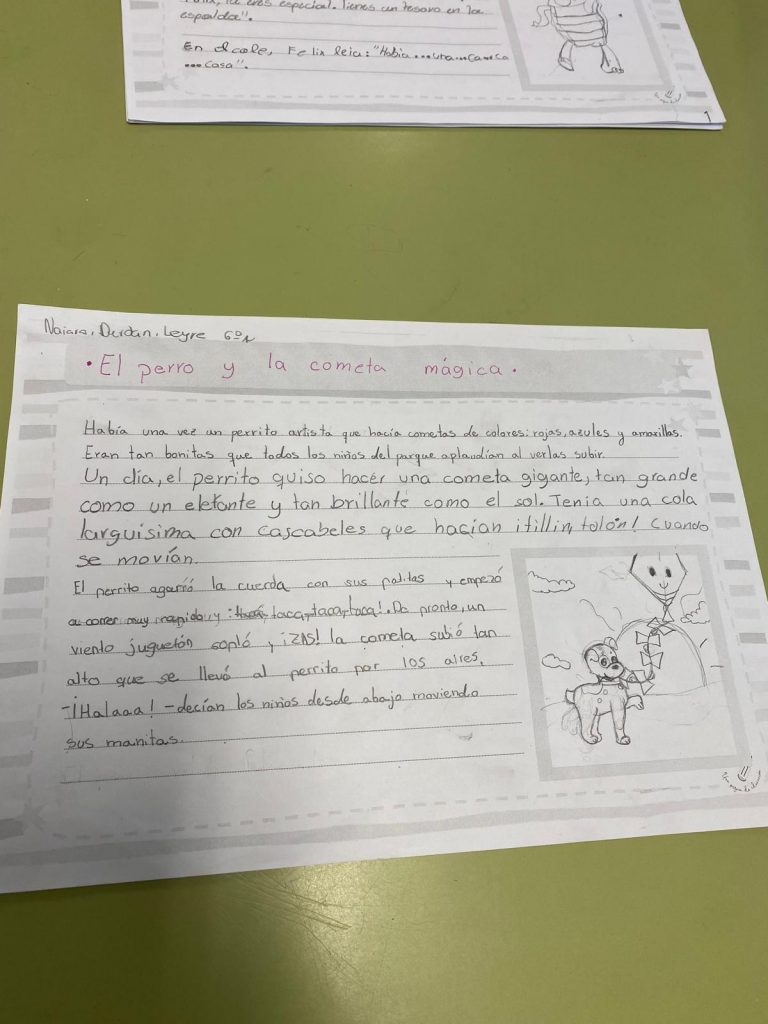 eres especial. Tienes un tesoro en la
espalda".
En el cole, Felix leia: "Habia...una...ca...ca
...casa".
1
Naiara, Durdan, Leyre 6ºA
• El perro y la cometa mágica.
Había una vez un perrito artista que hacía cometas de colores: rojas, azules y amarillas.
Eran tan bonitas que todos los niños del parque aplaudían al verlas subir.
Un día, el perrito quiso hacer una cometa gigante, tan grande
como un elefante y tan brillante como el sol. Tenia una cola
larguisima con cascabeles que hacían ¡tillin, tolón! Cuando
se movían.
El perrito agarró la cuerda con sus patitas y empezó
a correr muy rapido y: taca, taca, taca!. De pronto, un
viento juguetón sopló y, ¡ZAS! la cometa subió tan
alto que se llevó al perrito por los aires.
-¡Halaaa! - decían los niños desde abajo moviendo
sus manitas.